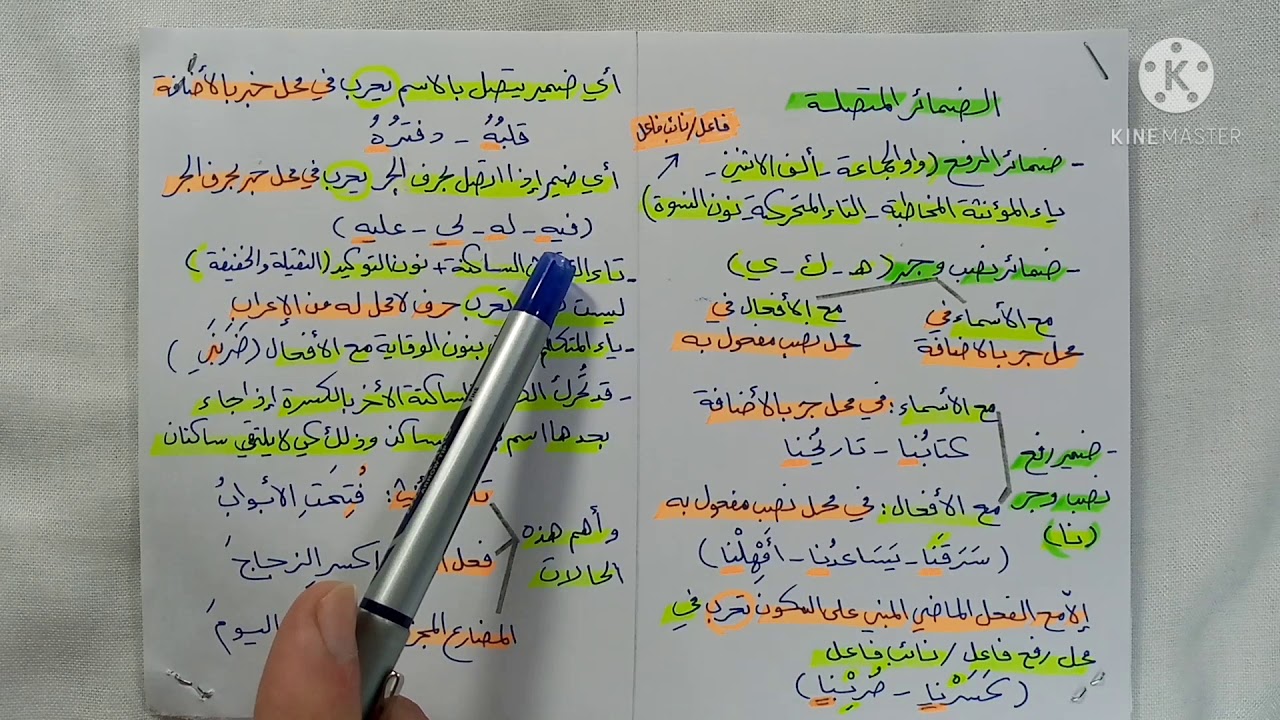 الضمائر المتصلة
فاعل/نائب فاعل
- ضمائر الرفع (واو الجماعة - ألف الاثنين -
ياء المؤنثة المخاطبة - التاء المتحركة - نون النسوة)
- ضمائر نصب وجر (ه - ك - ي)
مع الأسماء في
محل جر بالاضافة
مع الأفعال في
محل نصب مفعول به
- ضمير رفع
نصب وجر
(نا)
مع الأسماء: في محل جر بالأضافة
كتابُنا - تاريخُنا
مع الأفعال: في محل نصب مفعول به
(سَرَقَنا - يَسَاعدُنا - أَمْهِلْنا)
إلّا مع الفعل الماضي المبني على السكون تعرب في
محل رفع فاعل / نائب فاعل
(كَسَرْنا - ضُرِبْنا)
أي ضمير يتصل بالاسم يعرب في محل جر بالأضافة
قلبُهُ - دفترُهُ
أي ضمير إذا اتصل بحرف الجر يعرب في محل جر بحرف الجر
(فيه - له - لي - عليه)
- تاء الساكنة + نون التوكيد (الثقيلة والخفيفة)
ليست تعرب حرف لا محل له من الإعراب
- ياء المتكلم بنون الوقاية مع الأفعال (ضَرَبَني)
- قد تُحرك الساكنة الأخر بالكسرة إذا جاء
بعدها اسم ساكن وذلك كي لا يلتقي ساكنان
وأهم هذه
الحالات
فُتِحَتِ الأبوابُ
فعل
اكسرِ الزجاجَ
المضارع
اليومَ
KINEMASTER